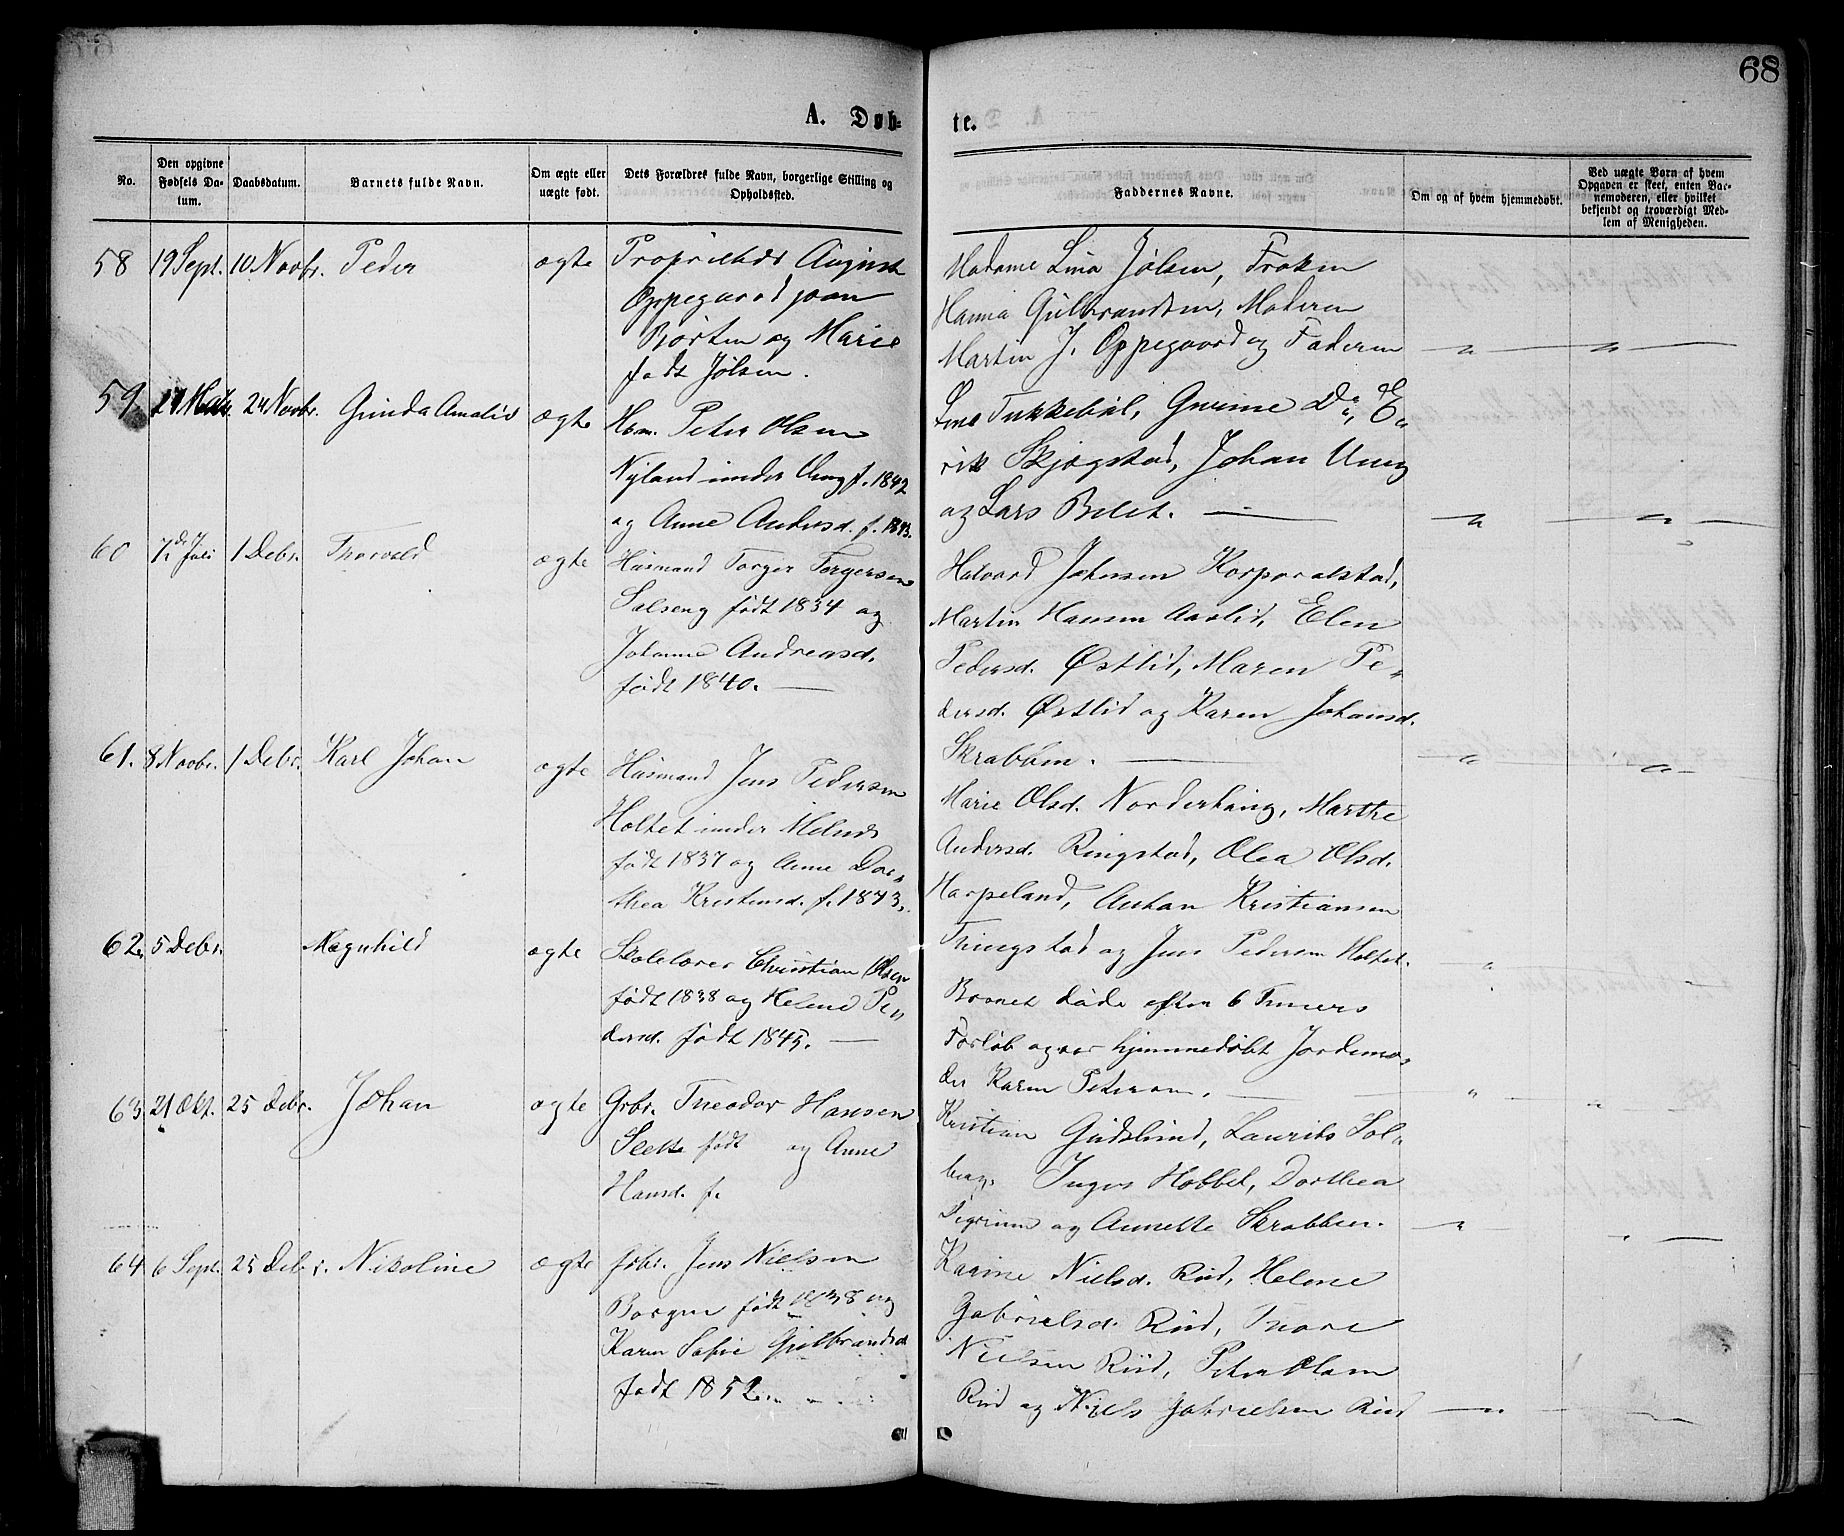 68
A. Døb-
te.
No.
Den opgivne Fødsels Datum.
Daabsdatum.
Barnets fulde Navn.
Om ægte eller uægte født.
Dets Forældres fulde Navn, borgerlige Stilling og Opholdssted.
Faddernes Navne.
Om og af hvem hjemmedøbt.
Ved uægte Barn af hvem Opgaven er skeet, enten Barnemoderen, eller hvilket bekjendt og troværdigt Medlem af Menigheden.
58 19 Sept. 10 Novbr. Peder ægte
Proprietær August
Oppegaard paa
Børten og Marie
født Jølsen.
Madame Lina Jølsen, Frøken
Hanna Gulbrandsen, Moderen
Martin J. Oppegaard og Faderen
59. 24 Novbr. Gunda Amalie ægte
Hsm. Peter Olsen
Nyland under Ung f. 1842
og Anne Andersd. f. 1843.
Lene Tukkebøl, Gurine Do, E-
rik Skjøgstad, Johan Ung
og Lars Bilet.
60 7de Juli 1 Debr. Thorvald ægte
Husmand Torger Torgersen
Solseng født 1834 og
Johanne Andreasd.
født 1840.
Halvard Johnsen Korporalstad,
Martin Hansen Aaslid, Elen
Pedersd. Østlid, Maren Pe-
dersd. Østlid og Karen Johansd.
Skrabben.
61. 8 Novbr. 1 Debr. Karl Johan ægte
Husmand Jens Pedersen
Holtet under Melnes
født 1837 og Anne Dor-
thea Kristensd. f. 1843.
Marie Olsd. Norderhaug, Marthe
Andersd. Ringstad, Olea Olsd.
Harpeland, Anton Kristiansen
Tringstad og Jens Pedersen Holtet.
62. 5 Debr. Magnhild ægte
Skolelærer Christian Olsen
født 1838 og Helene Pe-
dersd. født 1845.
Barnet døde efter 6 Timers
Forløb og var hjemmedøbt Jordemo-
der Karen Peterson.
63. 21 Okt. 25 Debr. Johan ægte
Grbr. Theodor Hansen
Slette født og Anne
Hansd. f.
Kristian Gudslund, Laurits Sol-
berg, Inger Hobbel, Dorthea
Digerum og Annette Skrabben.
64 6 Sept. 25 Debr. Nikoline ægte
Grbr. Jens Nielsen
Borgen født 1838 og
Karen Sofie Gulbrandsd
født 1852.
Karine Nielsd. Rud, Helene
Gabrielsd. Rud, Thore
Nielsen Rud, Peter Olsen
Rud og Niels Gabrielsen Rud